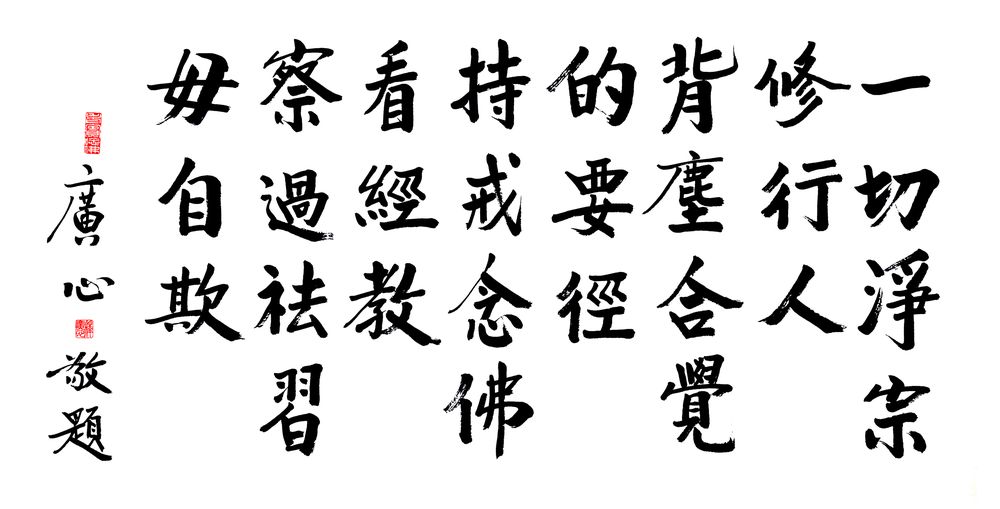 一切淨宗
修行人
背塵合覺
的要徑
持戒念佛
看經教
察過祛習
毋自欺
廣心敬題